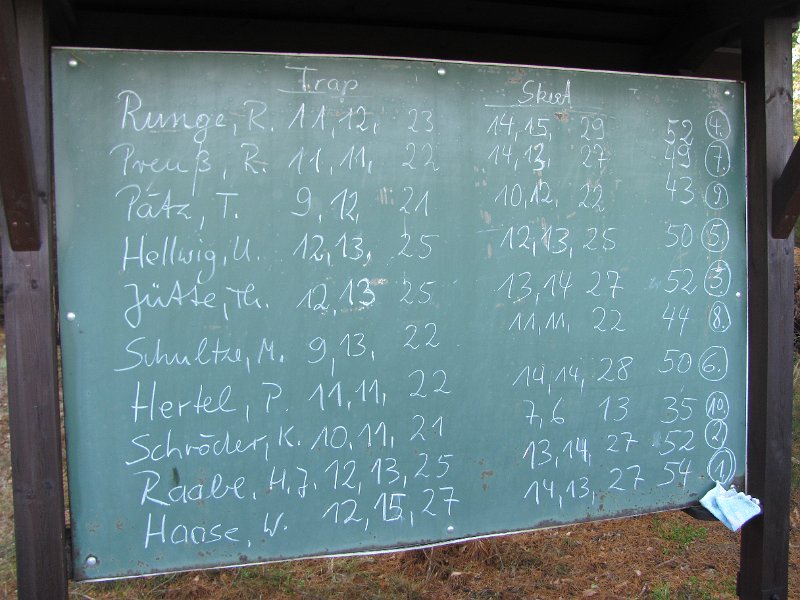 Trap Skeet
Runge, R. 11, 12, 23 14, 15, 29 52 4.
Preuß, R. 11, 11, 22 14, 13, 27 49 7.
Pätz, T. 9, 12, 21 10, 12, 22 43 9.
Hellwig, U. 12, 13, 25 12, 13, 25 50 5.
Jütte, Th. 12, 13 25 13, 14 27 52 3.
Schultze, M. 9, 13, 22 11, 11, 22 44 8.
Hertel, P. 11, 11, 22 14, 14, 28 50 6.
Schröder, K. 10, 11, 21 7, 6 13 35 10.
Raabe, H.J. 12, 13, 25 13, 14, 27 52 2.
Haase, W. 12, 15, 27 14, 13, 27 54 1.